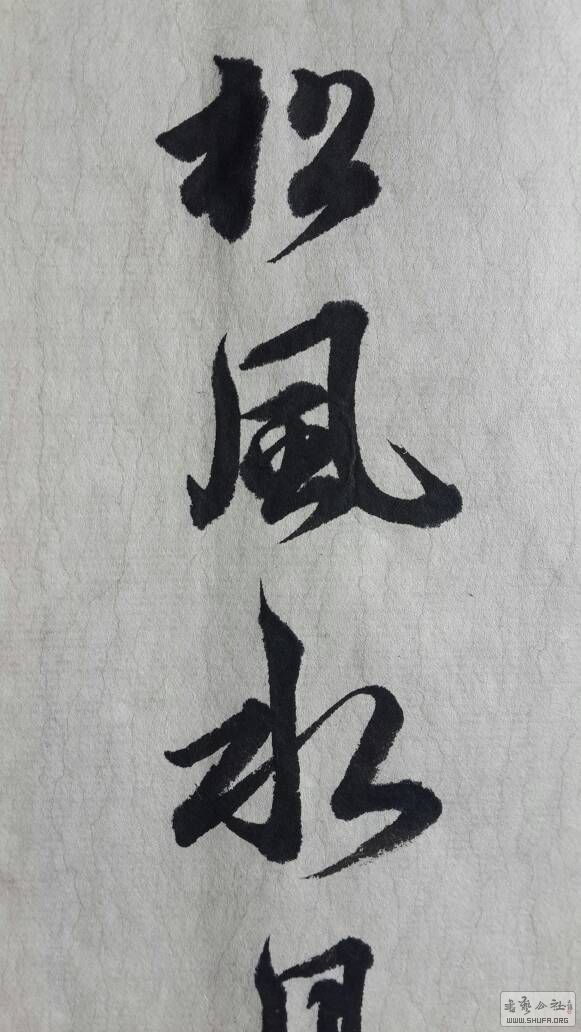 松風水月
书艺公社
WWW.SHUFA.ORG